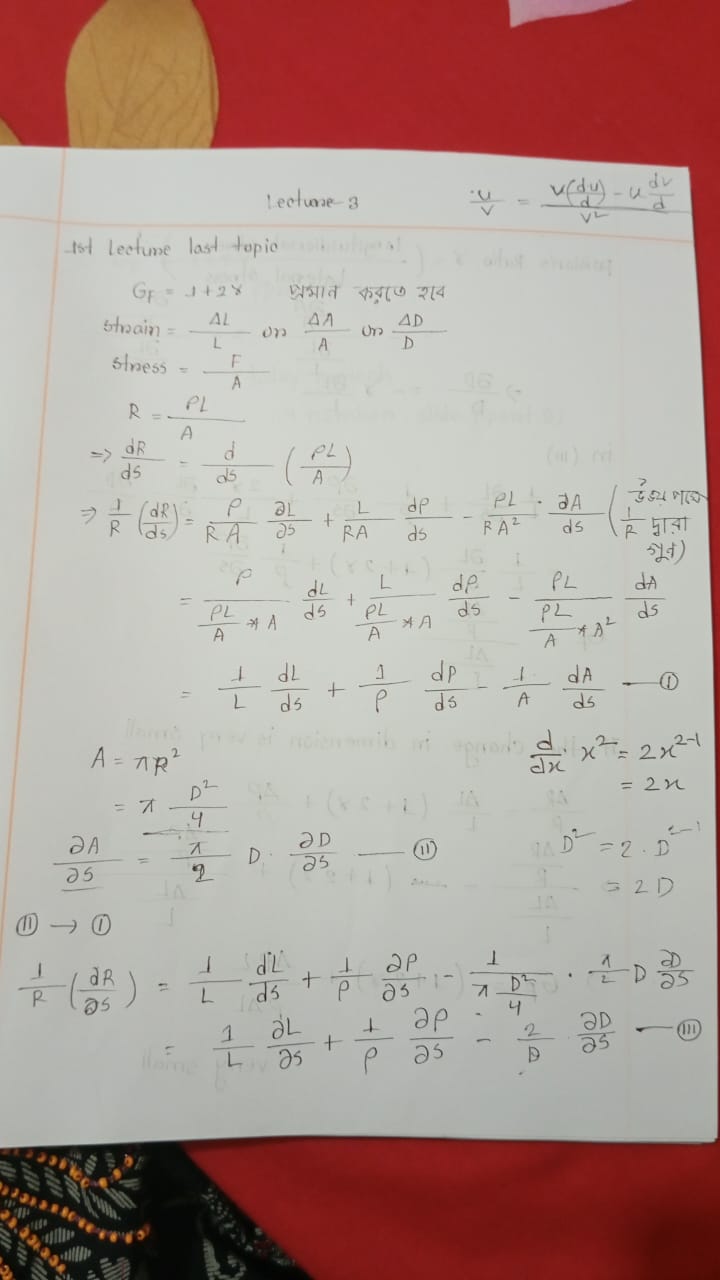 Lecture-3
u/v = (v(du/d) - u dv/d)/v²
1st Lecture last topic
G_F = 1+2γ প্রমান করতে হবে
strain = ΔL/L or ΔA/A or ΔD/D
stress = F/A
R = ρL/A
=> dR/ds = d/ds (ρL/A)
=> 1/R (dR/ds) = ρ/RA ∂L/∂s + L/RA dρ/ds - ρL/RA² · ∂A/ds (উভয় পক্ষে 1/R দ্বারা গুন)
= ρ/(ρL/A * A) dL/ds + L/(ρL/A * A) dρ/ds - ρL/(ρL/A * A²) dA/ds
= 1/L dL/ds + 1/ρ dρ/ds - 1/A dA/ds — ①
A = πR²
d/dx · x² = 2x²⁻¹
= 2x
= π D²/4
∂A/∂s = π/2 D · ∂D/∂s — ⑪
D² = 2·D²⁻¹
= 2D
⑪ → ①
1/R (∂R/∂s) = 1/L dL/ds + 1/ρ ∂ρ/∂s - 1/(π D²/4) · π/2 D ∂D/∂s
= 1/L ∂L/∂s + 1/ρ ∂ρ/∂s - 2/D · ∂D/∂s — ⑪I